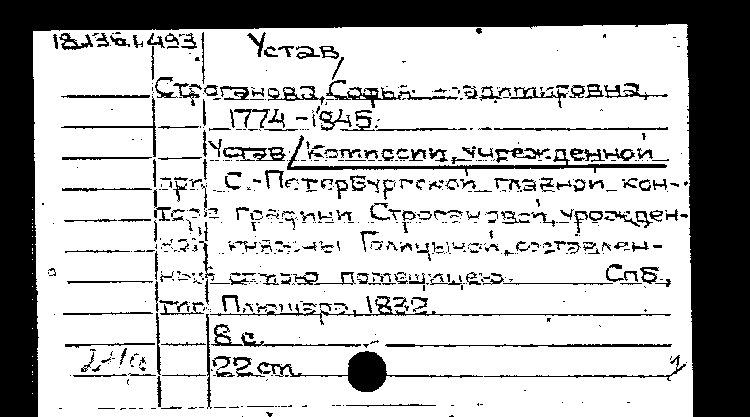 18.136.1.493
Устав
Строганова, Софья Владимировна,
1774-1845.
Устав / Комиссии, учрежденной
при С.-Петербургской главной кон-
торе графини Строгановой, урожден-
ной княжны Голицыной, составлен-
ный самою помещицею. Спб.,
тип. Плюшара, 1832.
8 с.
22 cm.